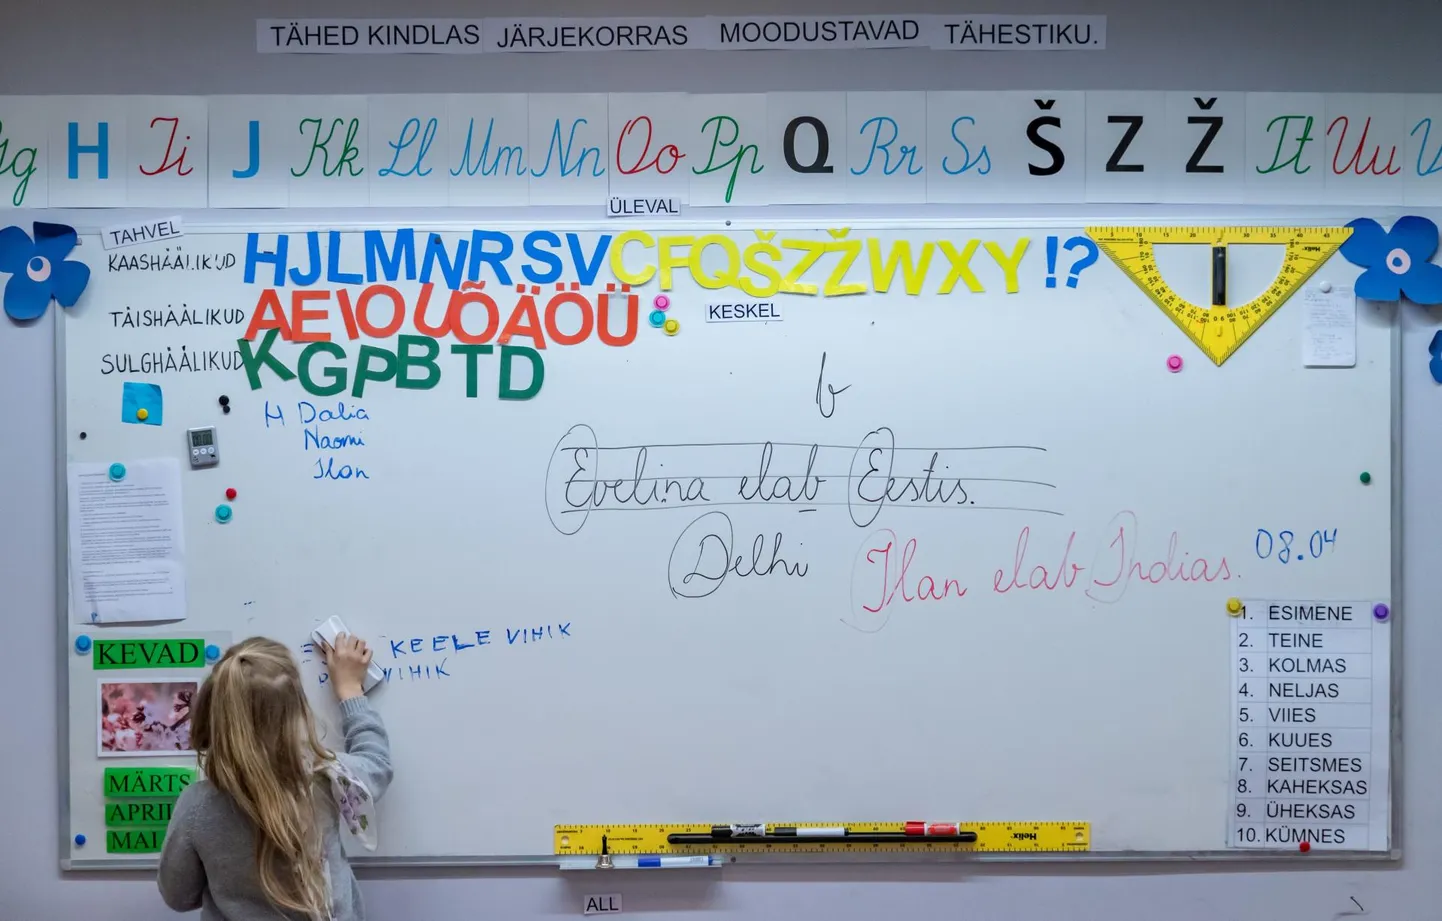 TÄHED KINDLAS JÄRJEKORRAS MOODUSTAVAD TÄHESTIKU.
g H Ii J Kk Ll Mm Nn Oo Pp Q Rr Ss Š Z Ž Tt Uu
ÜLEVAL
TAHVEL
KAASHÄÄLIKUD HJLMNRSVCFQŠZŽWXY!?
TÄISHÄÄLIKUD AEIOUÕÄÖÜ
KESKEL
SULGHÄÄLIKUD KGPBTD
b
H Dalia
Naomi
Ilan
Evelina elab Eestis.
Delhi
Ilan elab Indias.
08.04
KEELE VIHIK
VIHIK
KEVAD
MÄRTS
APRIL
MAI
1. ESIMENE
2. TEINE
3. KOLMAS
4. NELJAS
5. VIIES
6. KUUES
7. SEITSMES
8. KAHEKSAS
9. ÜHEKSAS
10. KÜMNES
Helix
ALL